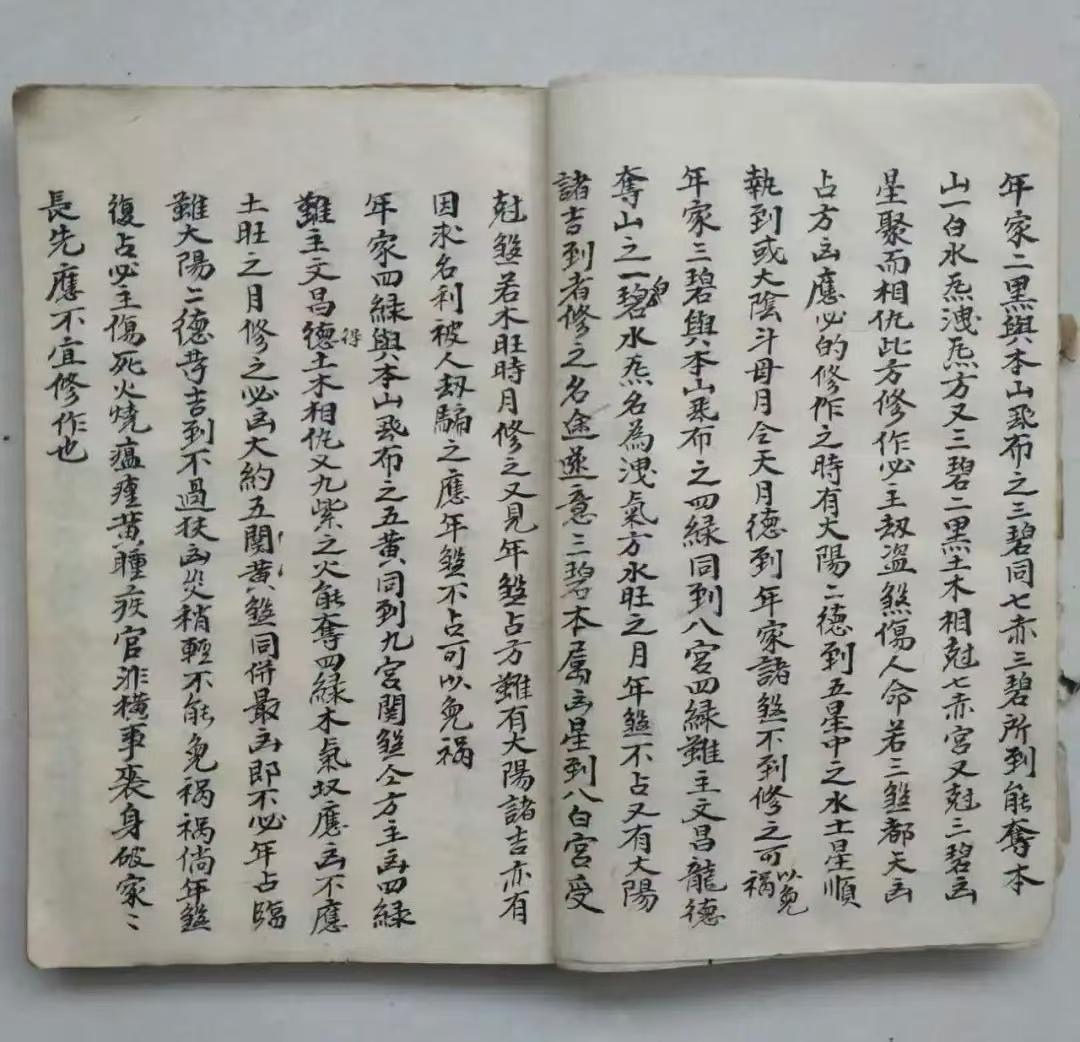 年家二黑與本山飛布之三碧同七赤三碧所到能奪本
山一白水炁洩炁方又三碧二黑土木相尅七赤宮又尅三碧凶
星聚而相仇此方修作必主刼盗煞傷人命若三煞都天凶
占方凶應必的修作之時有太陽二德到五星中之水土星順
執到或太陰斗母月令天月德到年家諸煞不到修之可以免禍
年家三碧與本山飛布之四緑同到八宮四緑雖主文昌龍德
奪山之一白水炁名為洩氣方水旺之月年煞不占又有大陽
諸吉到者修之名途遂意三碧本属凶星到八白宮受
尅煞若木旺時月修之又見年煞占方雖有大陽諸吉亦有
因求名利被人刼騙之應年煞不占可以免祸
年家四緑與本山飛布之五黄同到九宮関煞仝方主凶四緑
雖主文昌德得土木相仇又九紫之火能奪四緑木氣故應凶不應
土旺之月修之必凶大約五関黄煞同併最凶即不必年占臨
雖大陽二德等吉到不過扶凶災稍輕不能免祸祸倘年煞
復占必主傷死火燒瘟𤺄黄腫疾官非横事喪身破家〻
長先應不宜修作也